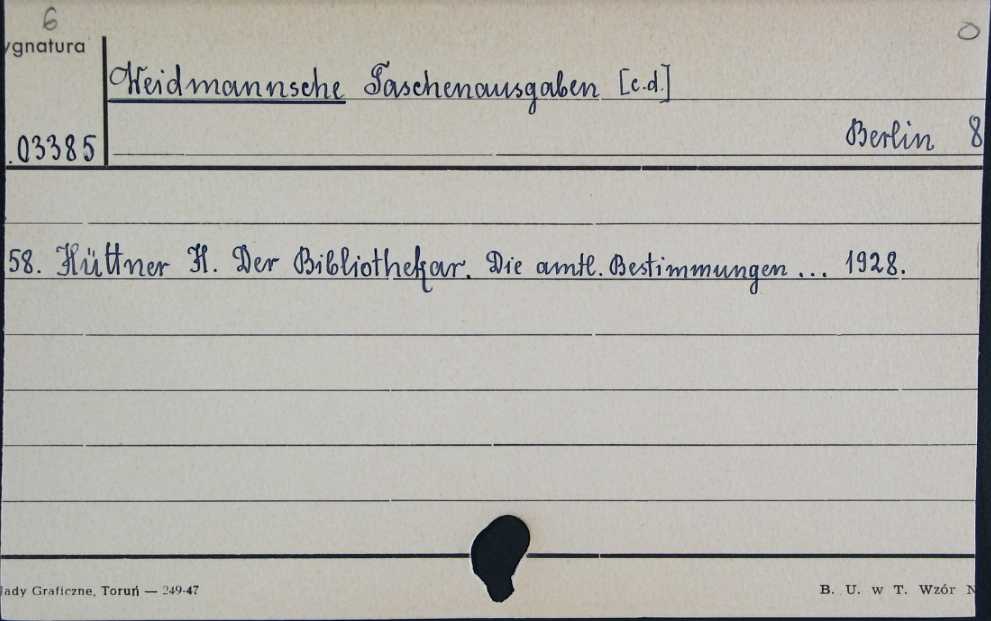 6
ygnatura
O
Weidmannsche Taschenausgaben [c.d.]
.03385
Berlin 8
58. Hüttner H. Der Bibliothekar. Die amtl. Bestimmungen ... 1928.
łady Graficzne, Toruń — 249-47
B. U. w T. Wzór N